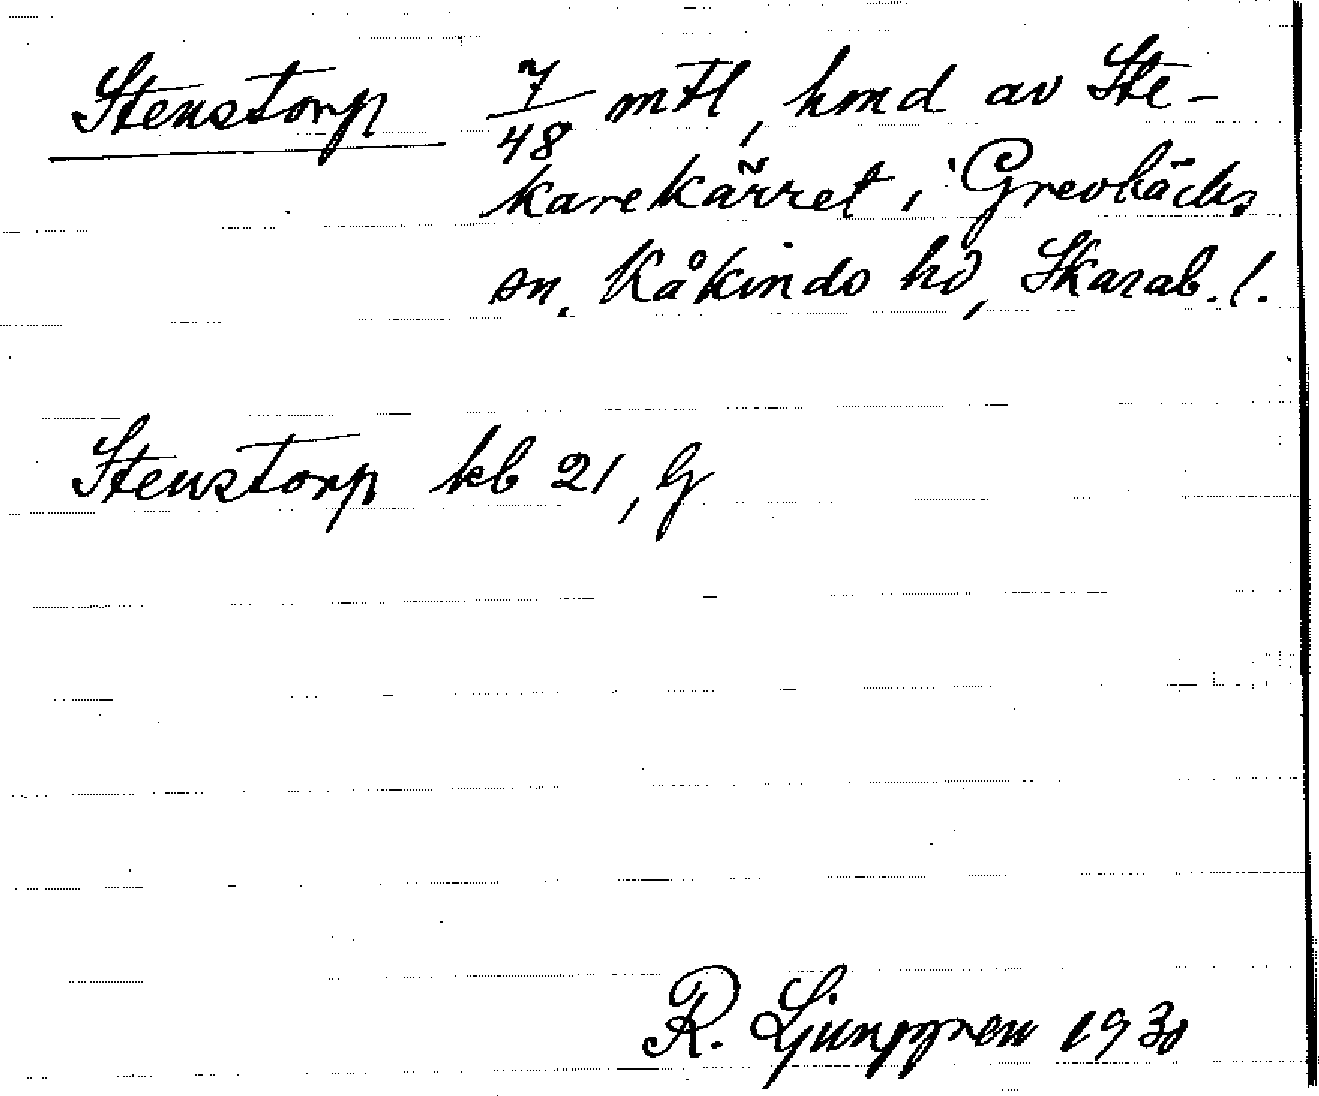 Stenstorp 7/48 mtl, hmd av Ste-
karekärret i Grevbäcks
sn, Kåkinds hd, Skarab. l.
Stenstorp kb 21, G
R. Ljunggren 1930